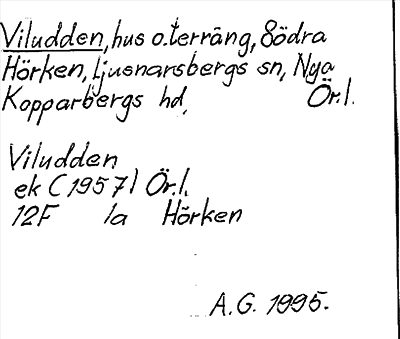 Viludden, hus o. terräng, Södra
Hörken, Ljusnarsbergs sn, Nya
Kopparbergs hd, Ör.l.
Viludden
ek (1957) Ör.l.
12F 1a Hörken
A.G. 1995.